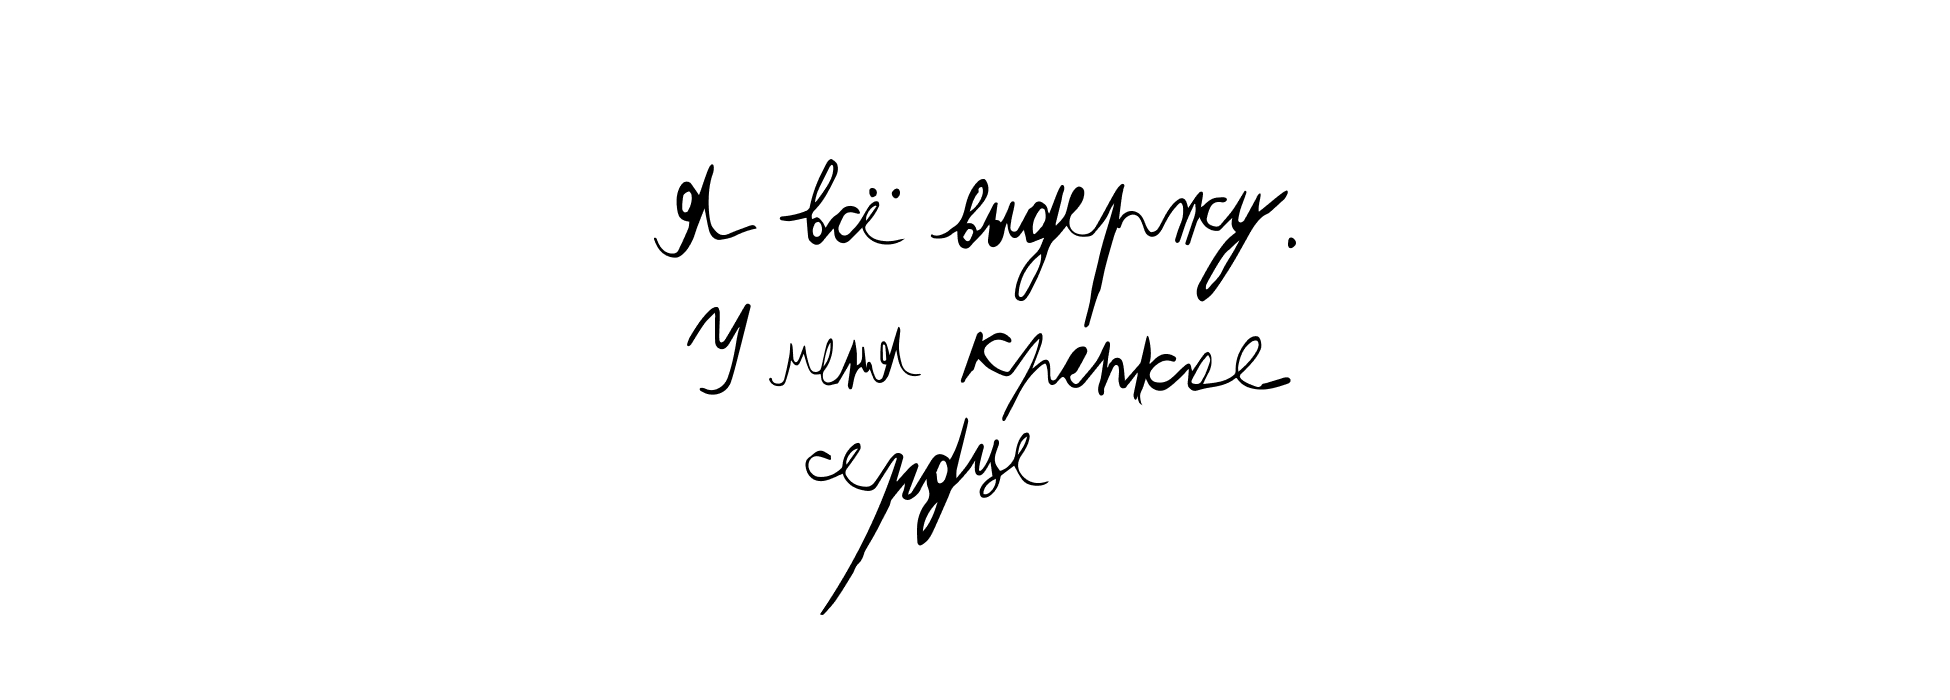 Я всё выдержу.
У меня крепкое
сердце